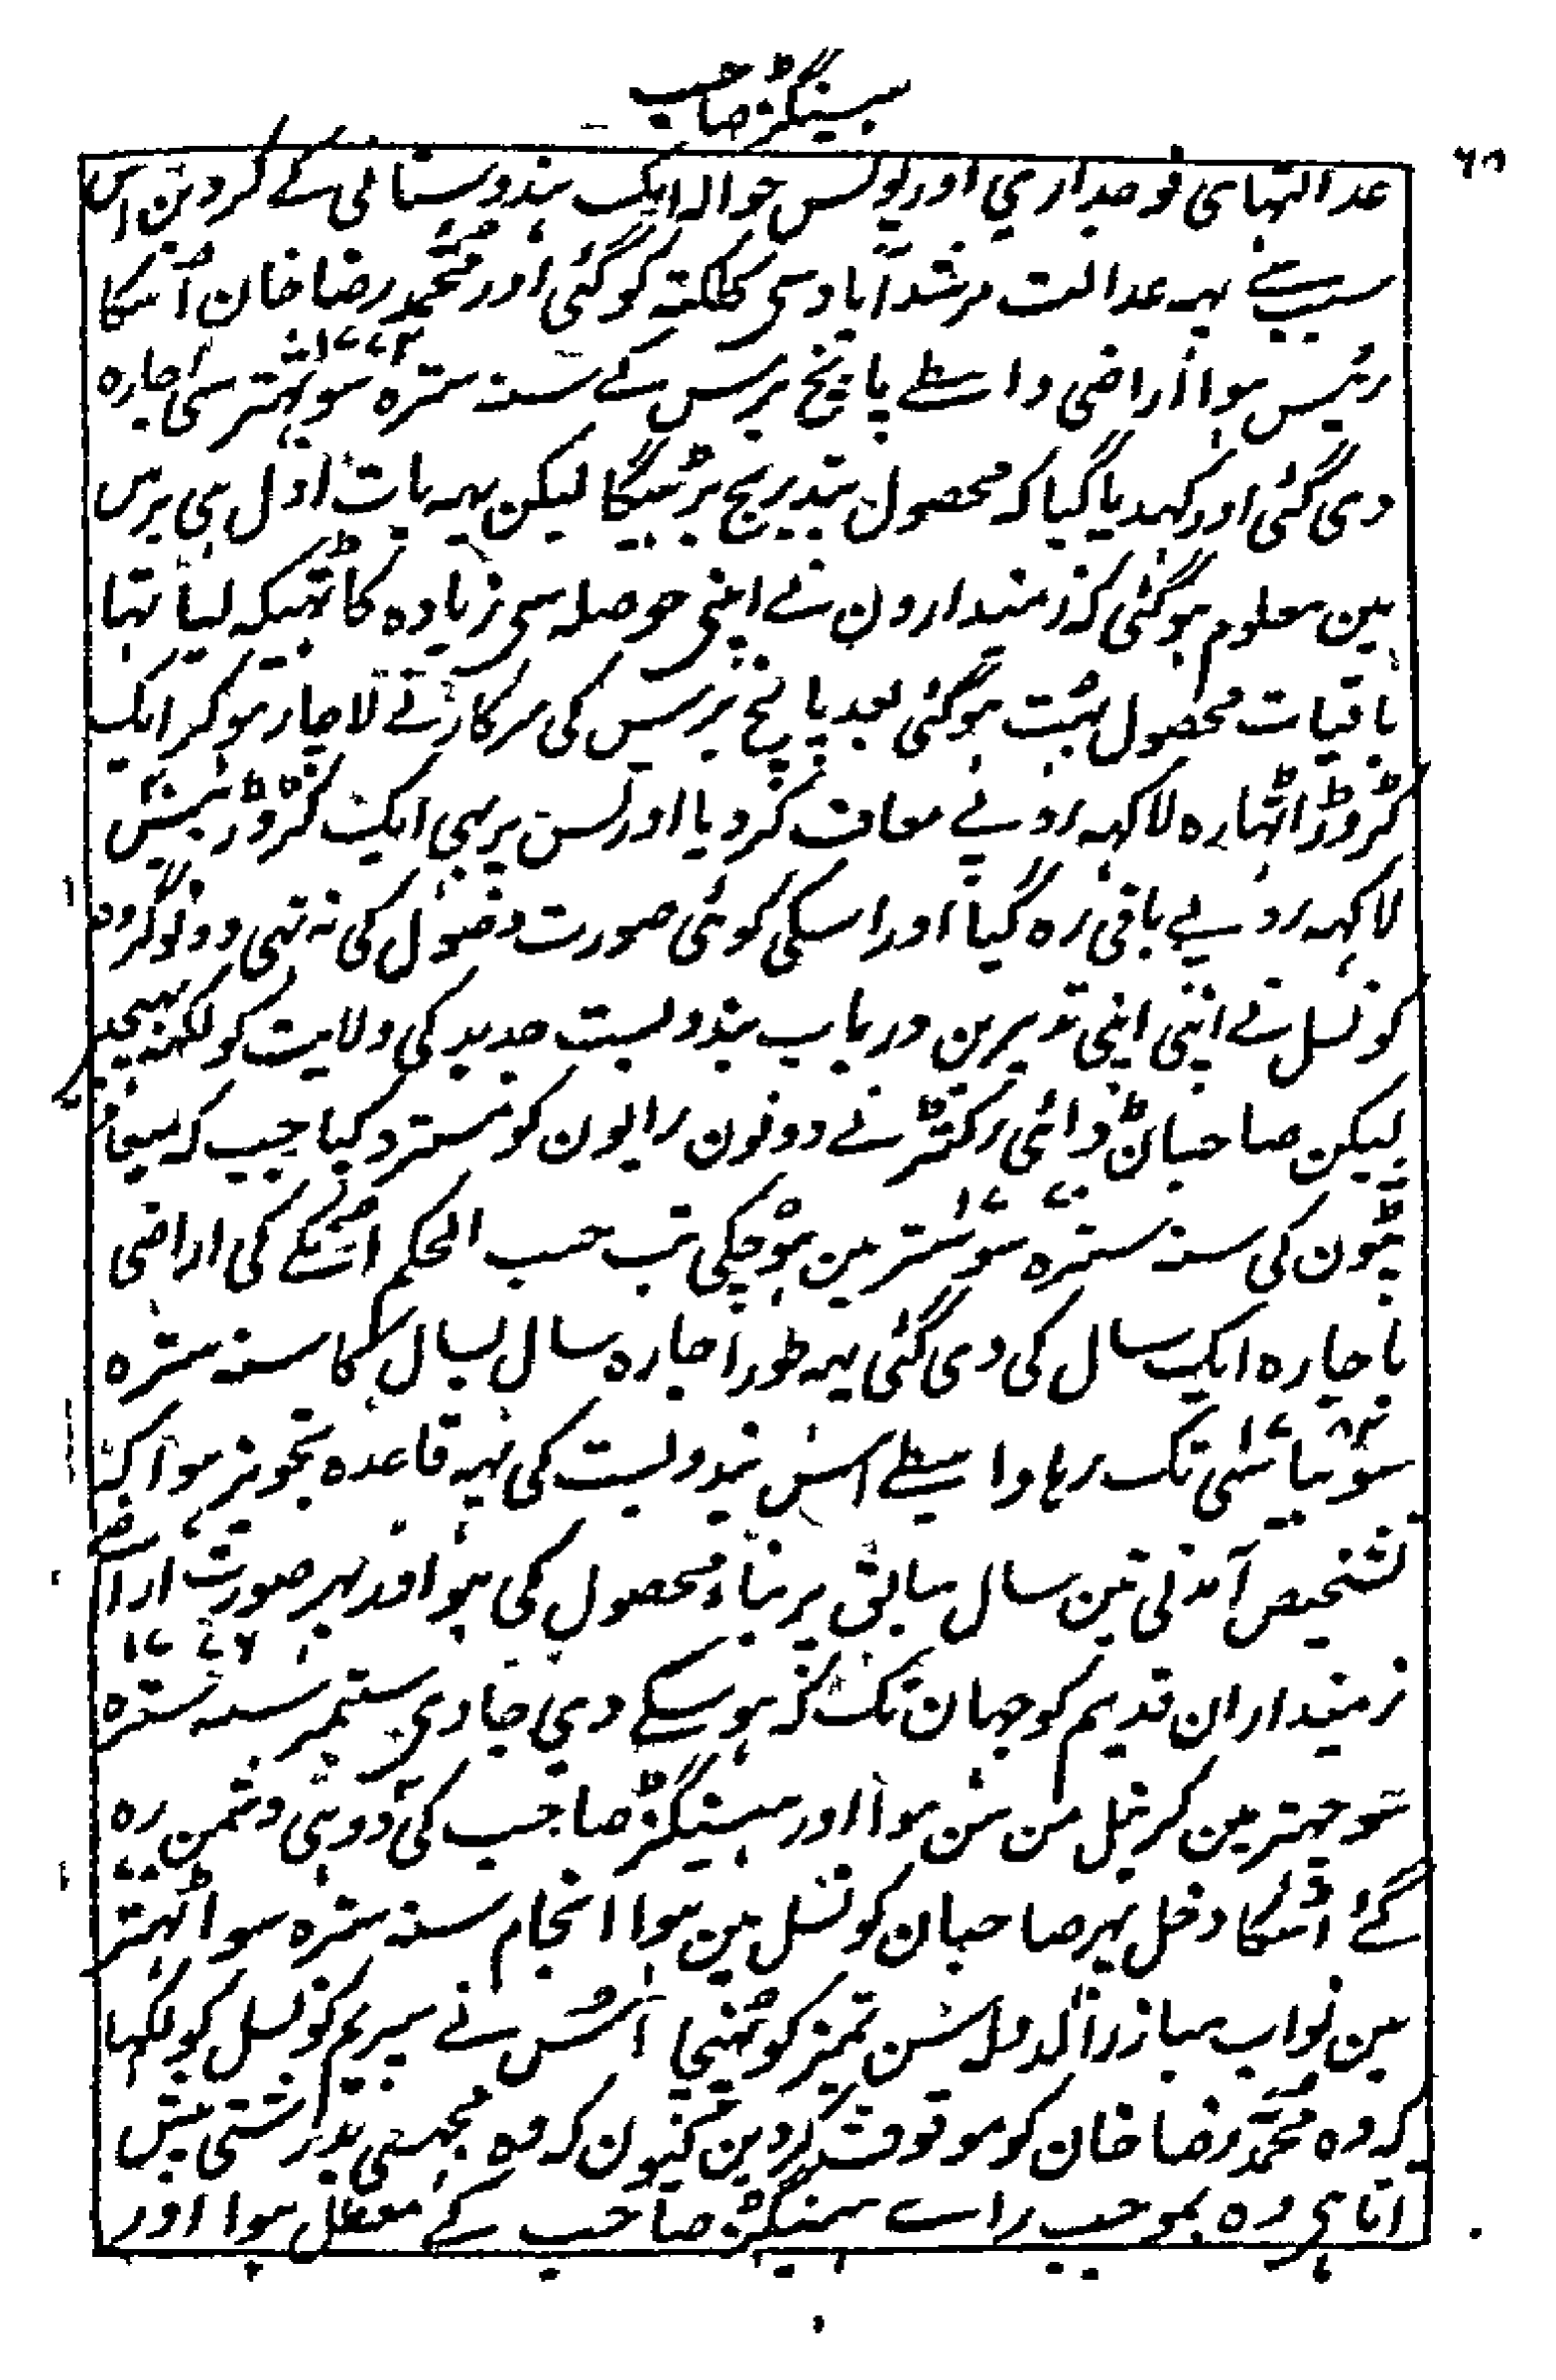 ہسینگز صاحب
۶۸
عدالتہای فوجداری اور پولس حوالہ ایک ہندوستانی کے کر دین اس
سبب سے یہہ عدالت مرشدآباد سی کلکتہ کو گئی اور محمد رضا خان اُسکا
رئیس ہوا اراضی واسطے پانچ برس کے سنہ سترہ سو بہتر سی اجارہ
۱۷۷۲
دی گئی اور کہدیا گیا کہ محصول بتدریج بڑہیگا لیکن یہہ بات اول ہی برس
مین معلوم ہو گئی کہ زمیندارون نے اپنی حوصلہ سی زیادہ کا ٹھیکہ لیا تہا
باقیات محصول بہُت ہو گئی بعد پانچ برس کی سرکار نے لاچار ہو کر ایک
کڑوڑ اٹہارہ لاکہہ روپے معاف کر دیا اور اس پر بہی ایک کڑوڑ بیس
لاکہہ روپے باقی رہ گیا اور اسکی کوئی صورت وصول کی نہ تہی دونو گروہ
کونسل نے اپنی اپنی تدبیرین درباب بندوبست جدید کی ولایت کو لکہہ بہیجی
لیکن صاحبان ڈائی رکٹر نے دونون رایون کو مسترد کیا جب کہ میعاد
پٹون کی سنہ سترہ سو ستتر مین ہو چکی تب حسب الحکم اُنکے کی اراضی
۱۷۷۷
باجارہ ایک سال کی دی گئی یہہ طور اجارہ سال بسال کا سنہ سترہ
سو بیاسی تک رہا واسطے اس بندوبست کی یہہ قاعدہ تجویز ہوا کہ
۱۷۸۲
تشخیص آمدنی تین سال سابق پر بناء محصول کی ہو اور بہر صورت اراضی
زمینداران قدیم کو جہان تک کہ ہو سکے دی جاوی ستمبر سنہ سترہ
۱۷۷۶
سو چہتر مین کرنیل من سن موا اور ہسینگز صاحب کی دو ہی دشمن رہ
گئے اُسکا دخل پہر صاحبان کونسل مین ہوا انجام سنہ سترہ سو اٹہتر
مین نواب مبارز الدولہ سن تمیز کو پہُنچا اُس نے سپریم کونسل کو لکہا
کہ وہ محمد رضا خان کو موقوف کردین کیون کہ وہ مجہسی بدرشتی پیش
آتا ہی وہ بموجب راے ہسینگز صاحب کے معطل ہوا اور